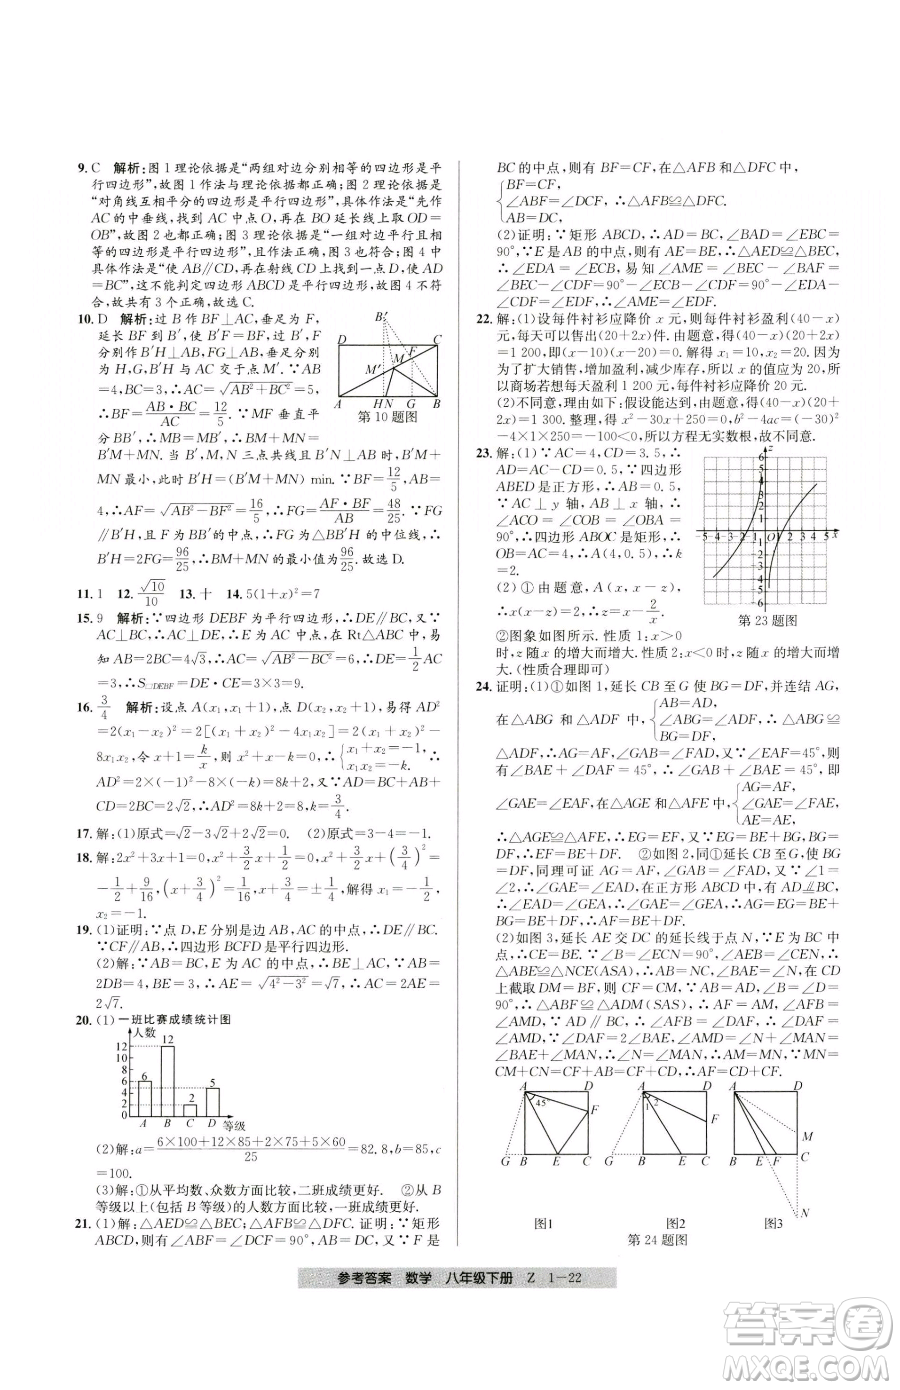 9. C 解析:图 1 理论依据是“两组对边分别相等的四边形是平
行四边形”,故图 1 作法与理论依据都正确;图 2 理论依据是
“对角线互相平分的四边形是平行四边形”,具体作法是“先作
AC 的中垂线,找到 AC 中点 O,再在 BO 延长线上取 OD=
OB”,故图 2 也都正确;图 3 理论依据是“一组对边平行且相
等的四边形是平行四边形”,且作法与理论依据符合;图 4 中
具体作法是“使 AB∥CD,再在射线 CD 上截取 AD=
BC”,这不能判定四边形 ABCD 是平行四边形,故作法错误,
故共有 3 个正确,故选 C.
10. D 解析:过 B 作 BF⊥AC,垂足为 F,
延长 BF 到 B′,使 B′F=BF,过 B′,F
分别作 B′H⊥AB,FG⊥AB,垂足分别
为 H,G,B′H 与 AC 交于点 M′.∵AB
=4,BC=3,∴AC=√(AB²+BC²)=5,
∴BF=AB·BC/AC=12/5.∵MF 垂直平
分 BB′,∴MB=MB′,∴BM+MN=
B′M+MN.当 B′,M,N 三点共线且 B′N⊥AB 时,B′M+
MN 最小,此时 B′H=(B′M+MN) min.∵BF=12/5,AB=
4,∴AF=√(AB²-BF²)=16/5,∴FG=AF·BF/AB=48/25.∵FG
∥B′H,且 F 为 BB′的中点,∴FG 为△BB′H 的中位线,∴
B′H=2FG=96/25,∴BM+MN 的最小值为96/25.故选 D.
第 10 题图
11. 1 12. √10/10 13. 十 14. 5(1+x)²=7
15. 9 解析:∵四边形 DEBF 为平行四边形,∴DE∥BC.∵
AC⊥BC,∴AC⊥DE.∵E 为 AB 中点,在 Rt△ABC 中,易
知 AB=2BC=4√3,∴AC=√(AB²-BC²)=6,∴DC=1/2AC=
3,∴S□DEBF=DE·CE=3×3=9.
16. 3/4 解析:设点 A(x₁,x₁+1),点 D(x₂,x₂+1),易得 AD²
=2(x₁-x₂)²=2[(x₁+x₂)²-4x₁x₂]=2(x₁+x₂)²-
8x₁x₂,令 x+1=k/x,则 x²+x-k=0,∴{x₁+x₂=-1, x₁x₂=-k,∴
AD²=2×(-1)²-8(-k)=8k+2,又∵AD=BC+AB+
CD=2BC=2√2,∴AD²=8k+2=8,∴k=3/4.
17. 解:(1)原式=√2-3√2+2√2=0. (2)原式=3-4=-1.
18. 解:2x²+3x+1=0,x²+3/2x+1/2=0,x²+3/2x+(3/4)²=
-1/2+9/16,(x+3/4)²=1/16,x+3/4=±1/4,解得 x₁=-1/2,
x₂=-1.
19. (1)证明:∵点 D,E 分别是 AB,AC 的中点,∴DE∥BC.
∵CF∥AB,∴四边形 BCFD 是平行四边形.
(2)解:∵AB=BC,E 为 AC 的中点,∴BE⊥AC.∵AB=
2DB=4,BE=3,∴AE=√(4²-3²)=√7,∴AC=2AE=
2√7.
20. (1)一班比赛成绩统计图
人数
12
10
8
6
4
2
0
6 12 2 5
A B C D 等级
(2)解:a=(6×100+12×85+2×75+5×60)/25=82.8,b=85,c
=100.
(3)解:①从平均数、众数方面比较,二班成绩更好. ②从 B
等级以上(包括 B 等级)的人数方面比较,一班成绩更好.
21. (1)解:△AED≌△BEC;△AFB≌△DFC. 证明:∵矩形
ABCD,则∠BAF=∠CDF=90°,AB=DC,∵F 是
BC 的中点,∴有 BF=CF,∴在△AFB 和△DFC 中,
{BF=CF,
∠ABF=∠DCF,∴△ABF≌△DCF.
AB=DC,
(2)证明:∵矩形 ABCD,∴AD=BC,∠BAD=∠ABC=
90°.∵E 是 AB 的中点,∴有 AE=BE,∴△AED≌△BEC,
∴∠EDA=∠ECB.易知∠AME=∠BEC=∠ADF=
∠BEC-∠CDF=90°-∠ECB-∠CDF=90°-∠EDA
-∠CDF=∠EDF,∴∠AME=∠EDF.
22. 解:(1)设每件衬衫应降价 x 元,则每件衬衫盈利(40-x)
元,每天可以售出(20+2x)件.由题意,得(40-x)(20+2x)
=1 200,即(x-10)(x-20)=0.解得 x₁=10,x₂=20.因
为了扩大销售,增加盈利,减少库存,所以 x 的值应为 20,
所以商场若想每天盈利 1 200 元,每件衬衫应降价 20 元.
(2)不同意,理由如下:假设能达到,由题意,得(40-x)(20
+2x)=1 300.整理,得 x²-30x+250=0,b²-4ac=(-30)²
-4×1×250=-100<0,所以方程无实数根,故不同意.
23. 解:(1)∵AC=4,CD=3.5,∴
AD=AC-CD=0.5,∵四边形
ABED 是正方形,∴AB=0.5.∵
AC⊥y 轴,AB⊥x 轴,∴
∠ACO=∠COB=∠OBA=
90°,∴四边形 ABOC 是矩形,∴
OB=AC=4,∴A(4,0.5),∴k
=2.
(2)①由题意,A(x,x-z),
∴x(x-z)=2,∴z=x-2/x.
②图象如图所示.性质 1:x>0
时,z 随 x 的增大而增大.性质 2:x<0 时,z 随 x 的增大而增
大.(性质合理即可)
第 23 题图
24. 证明:(1)①如图 1,延长 CB 至 G 使 BG=DF,并连结 AG,
在△ABG 和△ADF 中,{AB=AD, ∠ABG=∠D, BG=DF,∴△ABG≌
△ADF,∴AG=AF,∠GAB=∠FAD.∵∠EAF=45°,
∴∠BAE+∠DAF=45°,∴∠GAB+∠BAE=45°,即
∠GAE=∠EAF.在△AGE 和△AFE 中,{AG=AF, ∠GAE=∠FAE, AE=AE,
∴△AGE≌△AFE,∴EG=EF,∵EG=BE+BG,BG=
DF,∴EF=BE+DF. ②如图 2,同①延长 CB 至 G 使 BG=
DF,同理可证 AG=AF,∠GAB=∠FAD=∠1.又∵∠1=
∠2,∴∠GAE=∠EAD.在正方形 ABCD 中,∵AD∥BC,
∴∠GEA=∠EAD,∴∠GAE=∠GEA,∴AG=EG,∵EG=
BE+BG,∴EG=BE+DF,∴AF=BE+DF.
(2)如图 3,延长 AE 交 DC 的延长线于点 N,∵E 为 BC 中
点,∴CE=BE.∵∠B=∠ECN=90°,∠AEB=∠NEC,
∴△AEB≌△NCE(ASA),∴CN=AB,∴CN=CD.在 CD
上截取 CM=CF,则 BF=DM,∵AB=AD,∠B=∠D=
90°,∴△ABF≌△ADM(SAS),∴AF=AM,∠AFB=
∠AMD,∵∠BAF=2∠BAE,∠AFB+∠BAF=90°,
∴∠AMD+2∠BAE=90°.∵∠AMD=∠N+∠NAM,
∠N=∠BAE,∴∠N=∠NAM,∴AM=MN,∴AF=MN=
CN+CM=AB+CF=CD+CF,∴AF=CD+CF.
A D 45° F G B E C
A D 1 2 F G B E C
A D M B E F C N
图1 图2 图3
第 24 题图
参考答案 数学 八年级下册 Z 1—22
答案圈
MXQE.COM